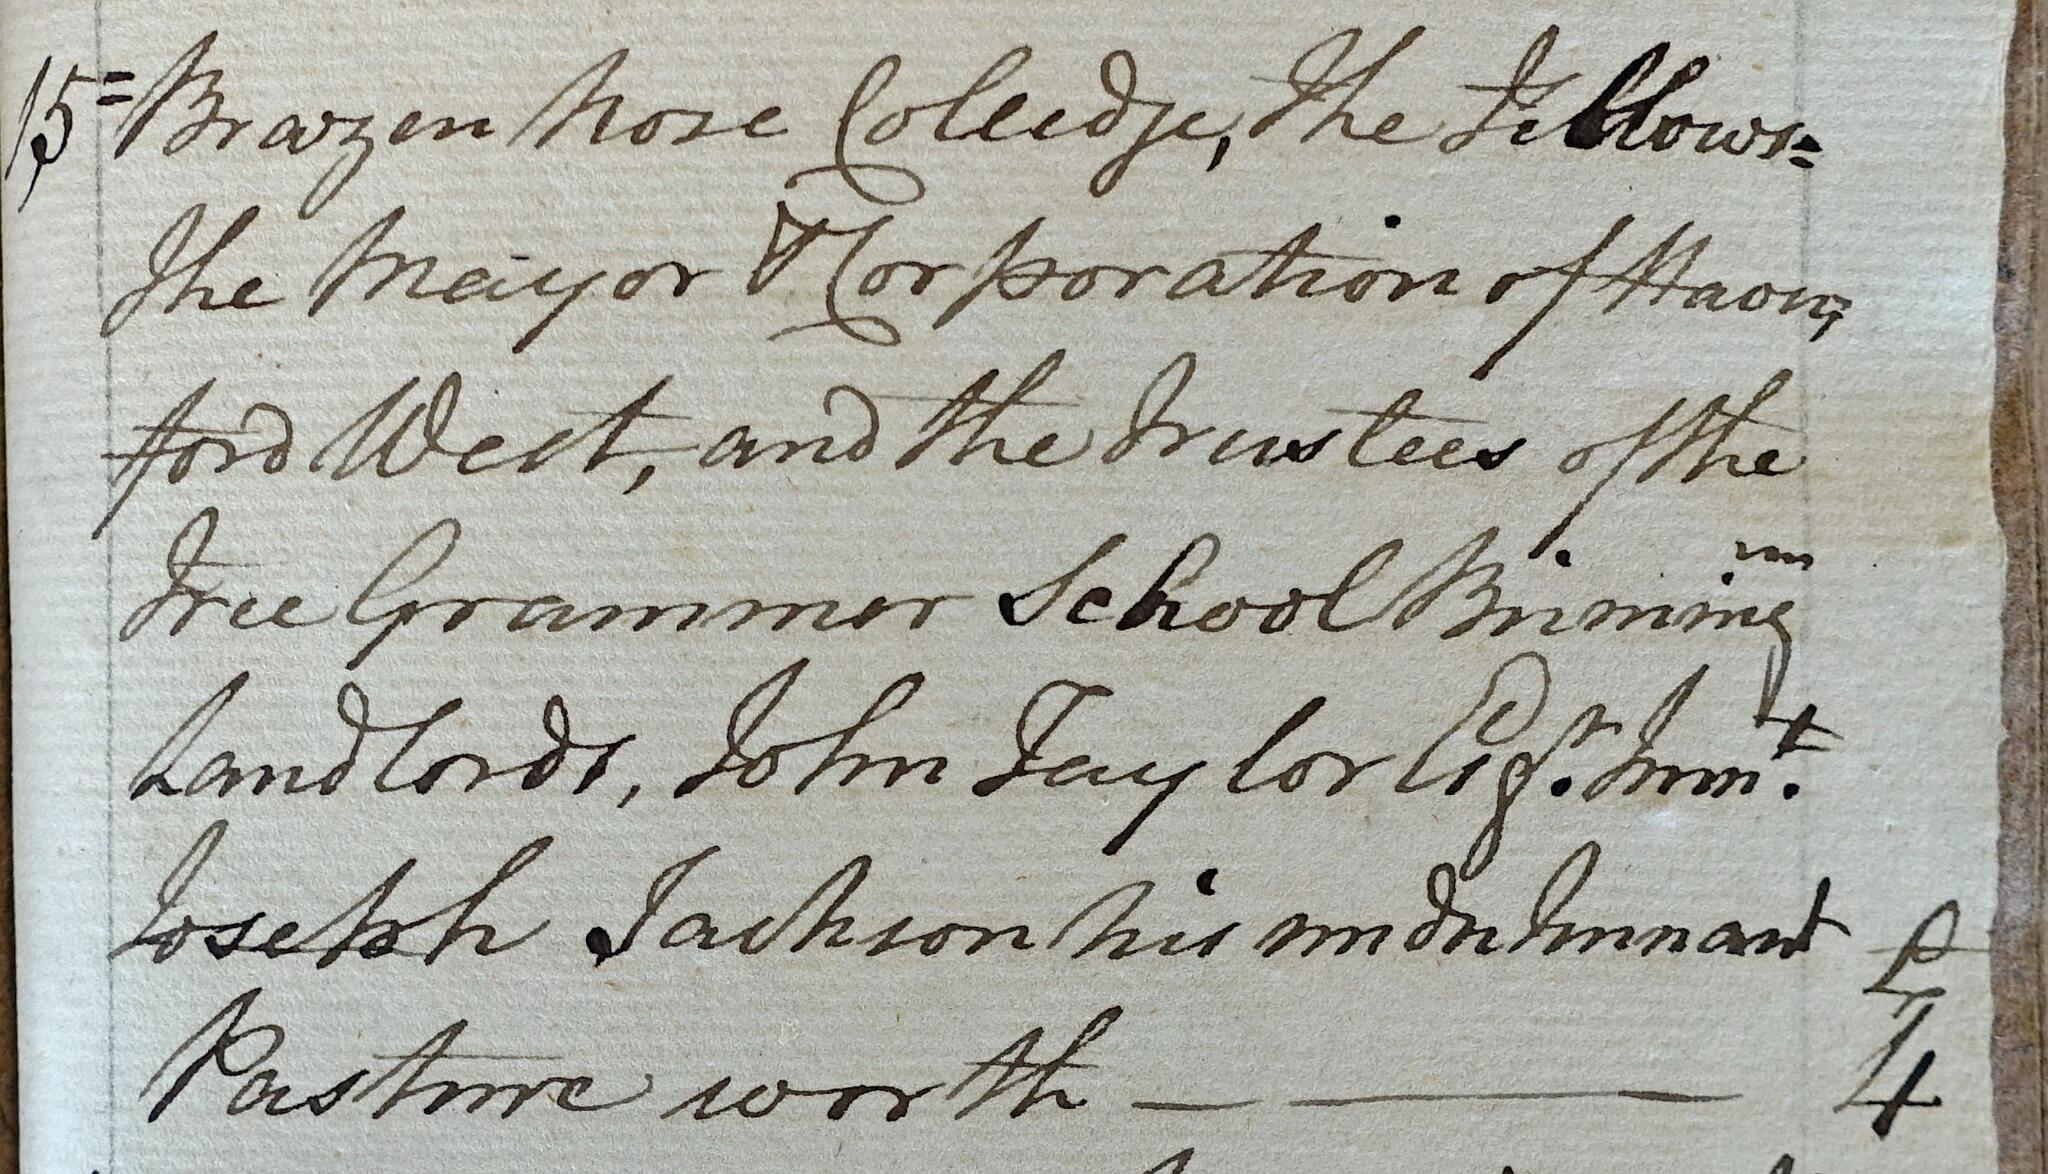 15= Brazen Nose Coleedje, The Fellows=
The Mayor & Corporation of Haour,
ford West, and the Trustees of the
Free Grammer School Birmming
Landlords, John Taylor Esqr. Tennt.
Joseph Jackson his under Tennant £
Pasture worth — — 4